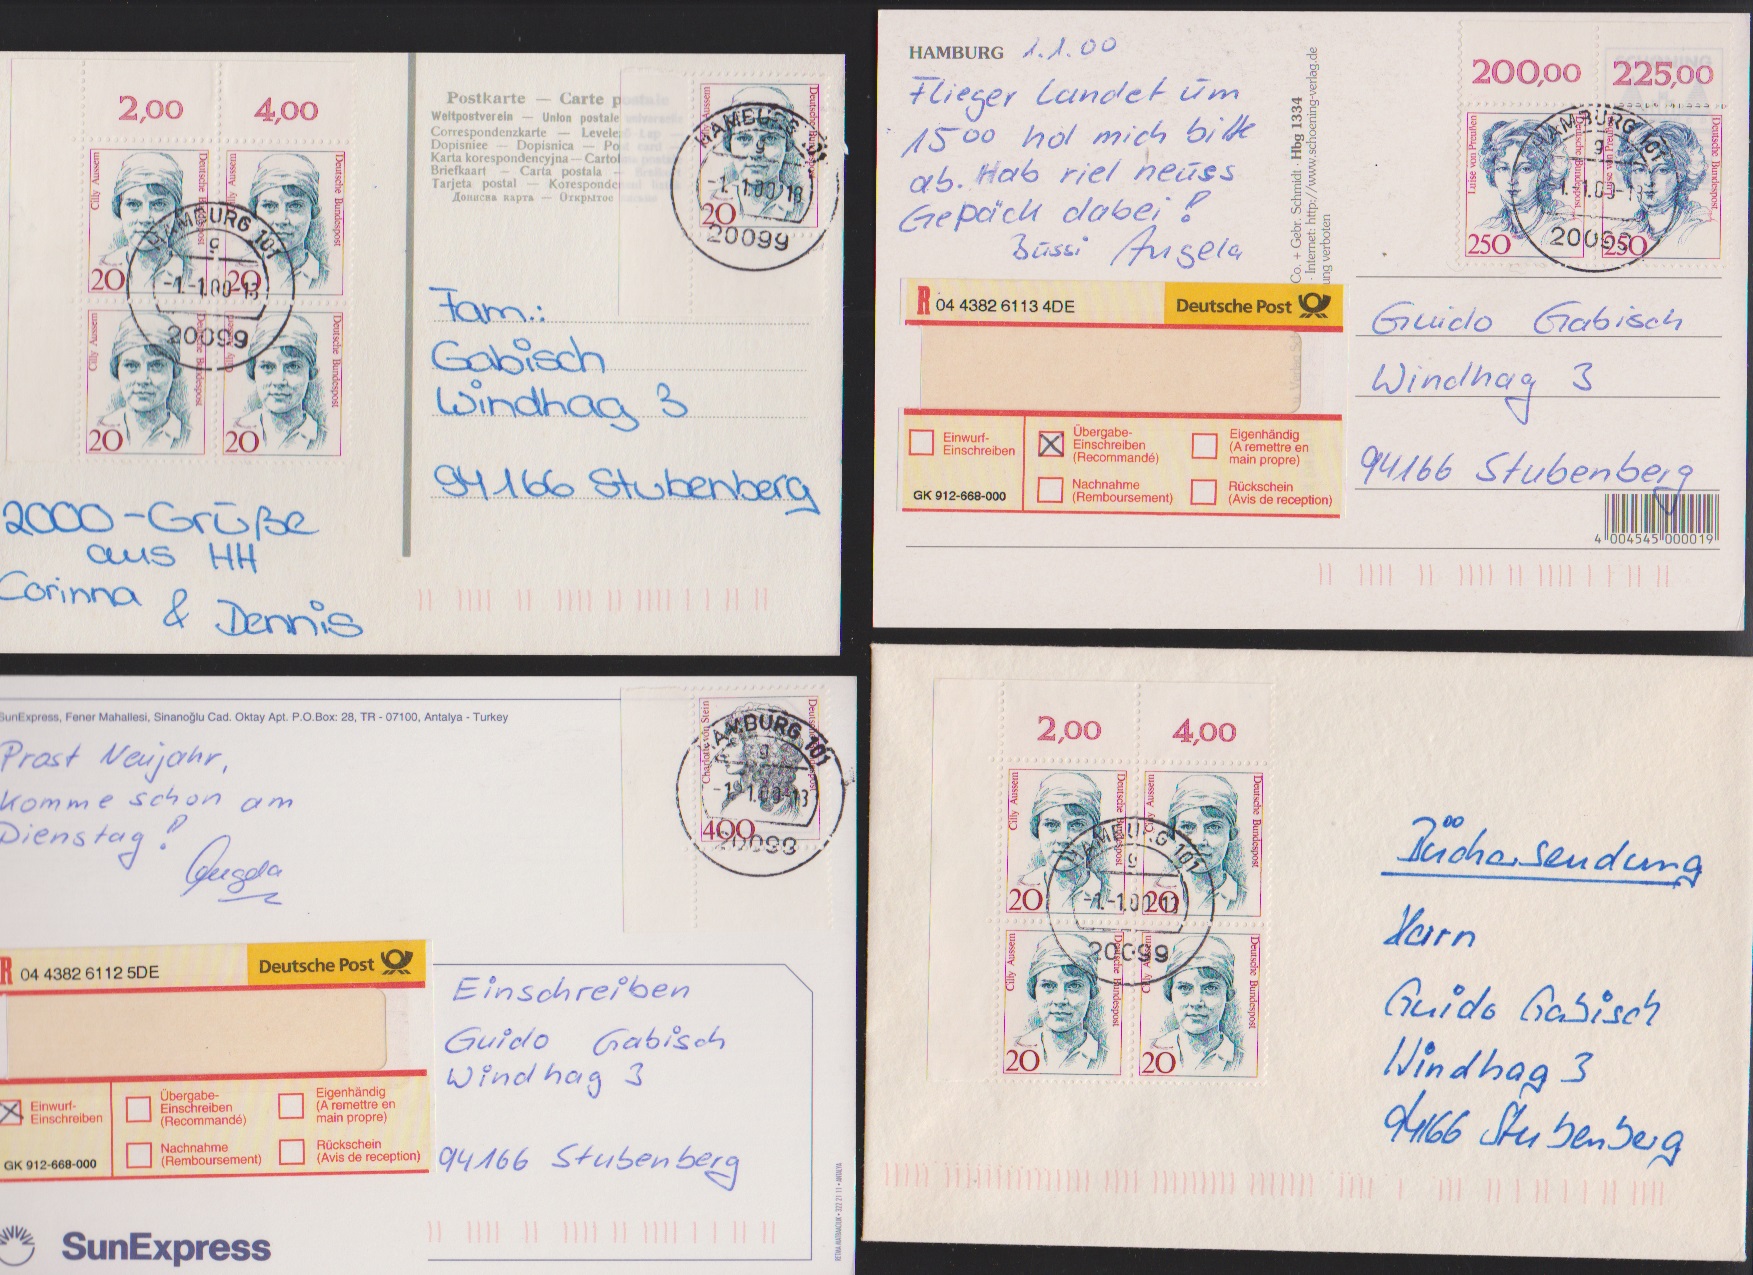 2,00 4,00
Cilly Aussem Deutsche Bundespost
20
Cilly Aussem Deutsche Bundespost
20
Cilly Aussem Deutsche Bundespost
20
Cilly Aussem Deutsche Bundespost
20
HAMBURG 101
g
-1.-1.00-13
20099
2000-Grüße
aus HH
Corinna
& Dennis
Postkarte — Carte postale
Weltpostverein — Union postale universelle
Correspondenzkarte —
Dopisnice — Dopisnica —
Karta korespondencyjna —
Briefkaart — Carta postala —
Tarjeta postal —
Дописна карта — Открытое
20
HAMBURG 101
g
-1.-1.00-13
20099
Fam.:
Gabisch
Windhag 3
94166 Stubenberg
HAMBURG 1.1.00
Flieger landet um
1500 hol mich bitte
ab. Hab viel neues
Gepäck dabei!
Bussi Angela
Co. + Gebr. Schmidt Hbg 1334
Internet: http://www.schoening-verlag.de
ung verboten
200,00 225,00
Luise von Preußen Deutsche Bundespost
250
Luise von Preußen Deutsche Bundespost
250
HAMBURG 101
g
-1.-1.00-13
20099
R 04 4382 6113 4DE Deutsche Post
Einwurf-
Einschreiben
Übergabe-
Einschreiben
(Recommandé)
Eigenhändig
(A remettre en
main propre)
GK 912-668-000
Nachnahme
(Remboursement)
Rückschein
(Avis de reception)
Guido Gabisch
Windhag 3
94166 Stubenberg
4 004545 000019
SunExpress, Fener Mahallesi, Sinanoğlu Cad. Oktay Apt. P.O.Box: 28, TR - 07100, Antalya - Turkey
Prost Neujahr,
komme schon am
Dienstag!
Angela
Charlotte von Stein
400
HAMBURG 101
g
-1.-1.00-13
20099
R 04 4382 6112 5DE Deutsche Post
Einwurf-
Einschreiben
Übergabe-
Einschreiben
(Recommandé)
Eigenhändig
(A remettre en
main propre)
GK 912-668-000
Nachnahme
(Remboursement)
Rückschein
(Avis de reception)
Einschreiben
Guido Gabisch
Windhag 3
94166 Stubenberg
SunExpress
2,00 4,00
Cilly Aussem Deutsche Bundespost
20
Cilly Aussem Deutsche Bundespost
20
Cilly Aussem Deutsche Bundespost
20
Cilly Aussem Deutsche Bundespost
20
HAMBURG 101
g
-1.-1.00-13
20099
Büchersendung
Herrn
Guido Gabisch
Windhag 3
94166 Stubenberg